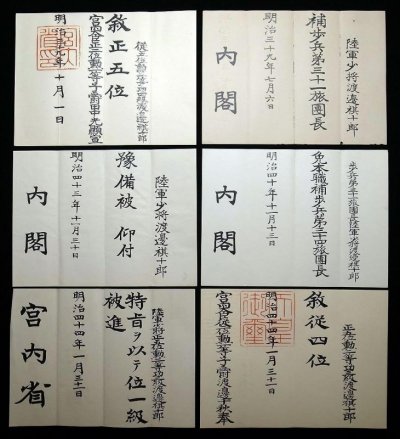 陸軍少將渡邊祺十郎
補歩兵第三十一旅團長
明治三十九年七月六日
內閣
從五位勳三等功四級渡邊祺十郎
敘正五位
宮內大臣正二位勳一等子爵田中光顯宣
年十月一日
歩兵第三十一旅團長陸軍少將渡邊祺十郎
免本職補歩兵第二十四旅團長
明治四十年十一月十三日
內閣
陸軍少將渡邊祺十郎
豫備被 仰付
明治四十三年十一月三十日
內閣
正五位勳二等功三級渡邊祺十郎
敘從四位
明治四十四年一月三十一日
宮內大臣從二位勳一等子爵渡邊千秋奉
陸軍少將正五位勳二等功三級渡邊祺十郎
特旨ヲ以テ位一級
被進
明治四十四年一月三十一日
宮內省